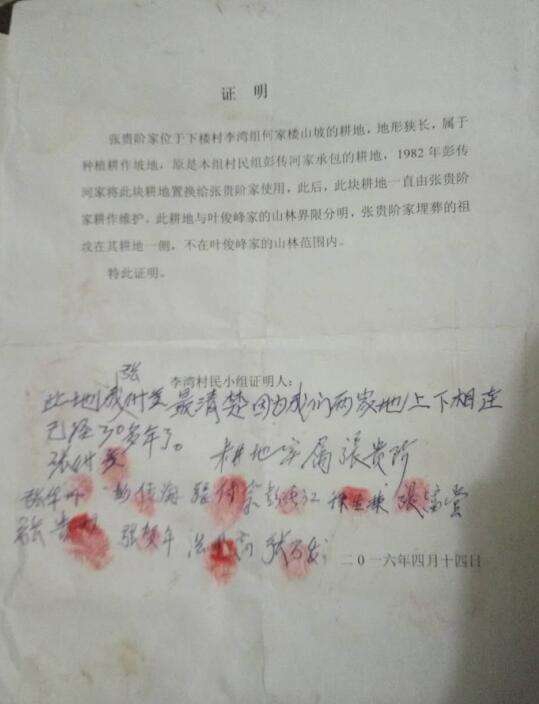 证 明
张贵阶家位于下楼村李湾组何家楼山坡的耕地，地形狭长，属于
种植耕作坡地，原是本组村民组彭传河家承包的耕地，1982年彭传
河家将此块耕地置换给张贵阶家使用，此后，此块耕地一直由张贵阶
家耕作维护。此耕地与叶俊峰家的山林界限分明，张贵阶家埋葬的祖
坟在其耕地一侧，不在叶俊峰家的山林范围内。
特此证明。
张
李湾村民小组证明人：
此地 最清楚因为我们两家地上下相连
已经30多年了。
耕地实属張贵阶
张 付
张
二〇一六年四月十四日